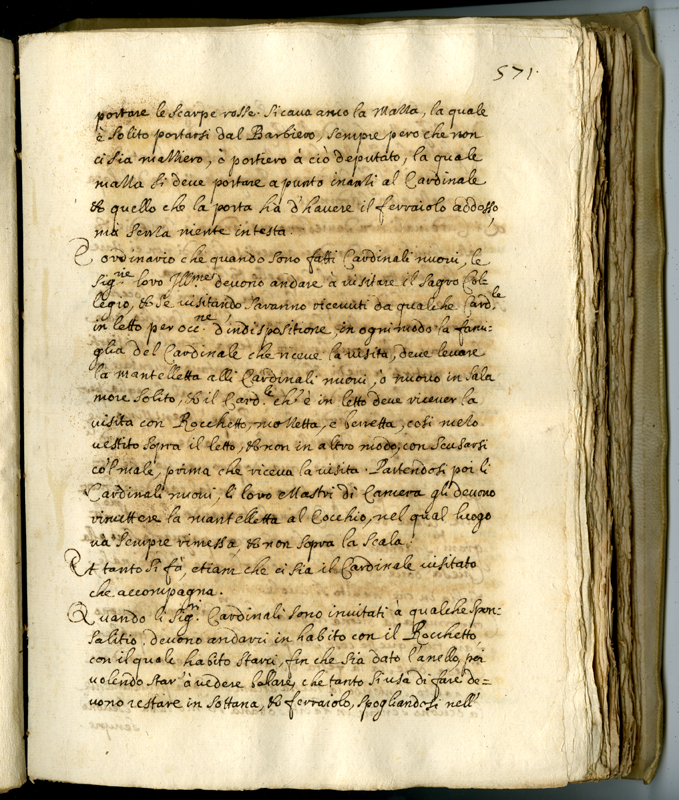 571.
portare le scarpe rosse. Si cava anco la Mazza, la quale
è solito portarsi dal Barbiero, sempre però che non
ci sia mazziero, ò portiero à ciò deputato, la quale
mazza si deve portare apunto inanzi al Cardinale
& quello che la porta hà d'havere il ferraiolo addosso,
mà senza niente in testa.
E ordinario che quando sono fatti Cardinali nuovi, le
Sig.rie loro Ill.me devono andare à visitare il Sagro Col=
legio, & se visitando saranno ricevuti da qualche Card.le
in letto per occ.ne d'indispositione, in ogni modo la fami=
glia del Cardinale che riceve la visita, deve levare
la mantelletta alli Cardinali nuovi, ò nuovo in sala
more solito, & il Card.le ch'è in letto deve ricever la
visita con Rocchetto, mozzetta, e berretta, così mezo
vestito sopra il letto, & non in altro modo, con scusarsi
co'l male, prima che riceva la visita. Partendosi poi li
Cardinali nuovi, li loro Mastri di Camera gli devono
rimettere la mantelletta al Cocchio, nel qual luogo
va sempre rimessa, & non sopra la Scala.
Et tanto si fà, etiam che ci sia il Cardinale visitato
che accompagna.
Quando li Sig.ri Cardinali sono invitati à qualche spon=
salitio, devono andarci in habito con il Rocchetto,
con il quale habito starci, fin che sia dato l'anello, poi
volendo star' à vedere balare, che tanto si usa di fare de=
vono restare in sottana, & ferraiolo, spogliandosi nell'